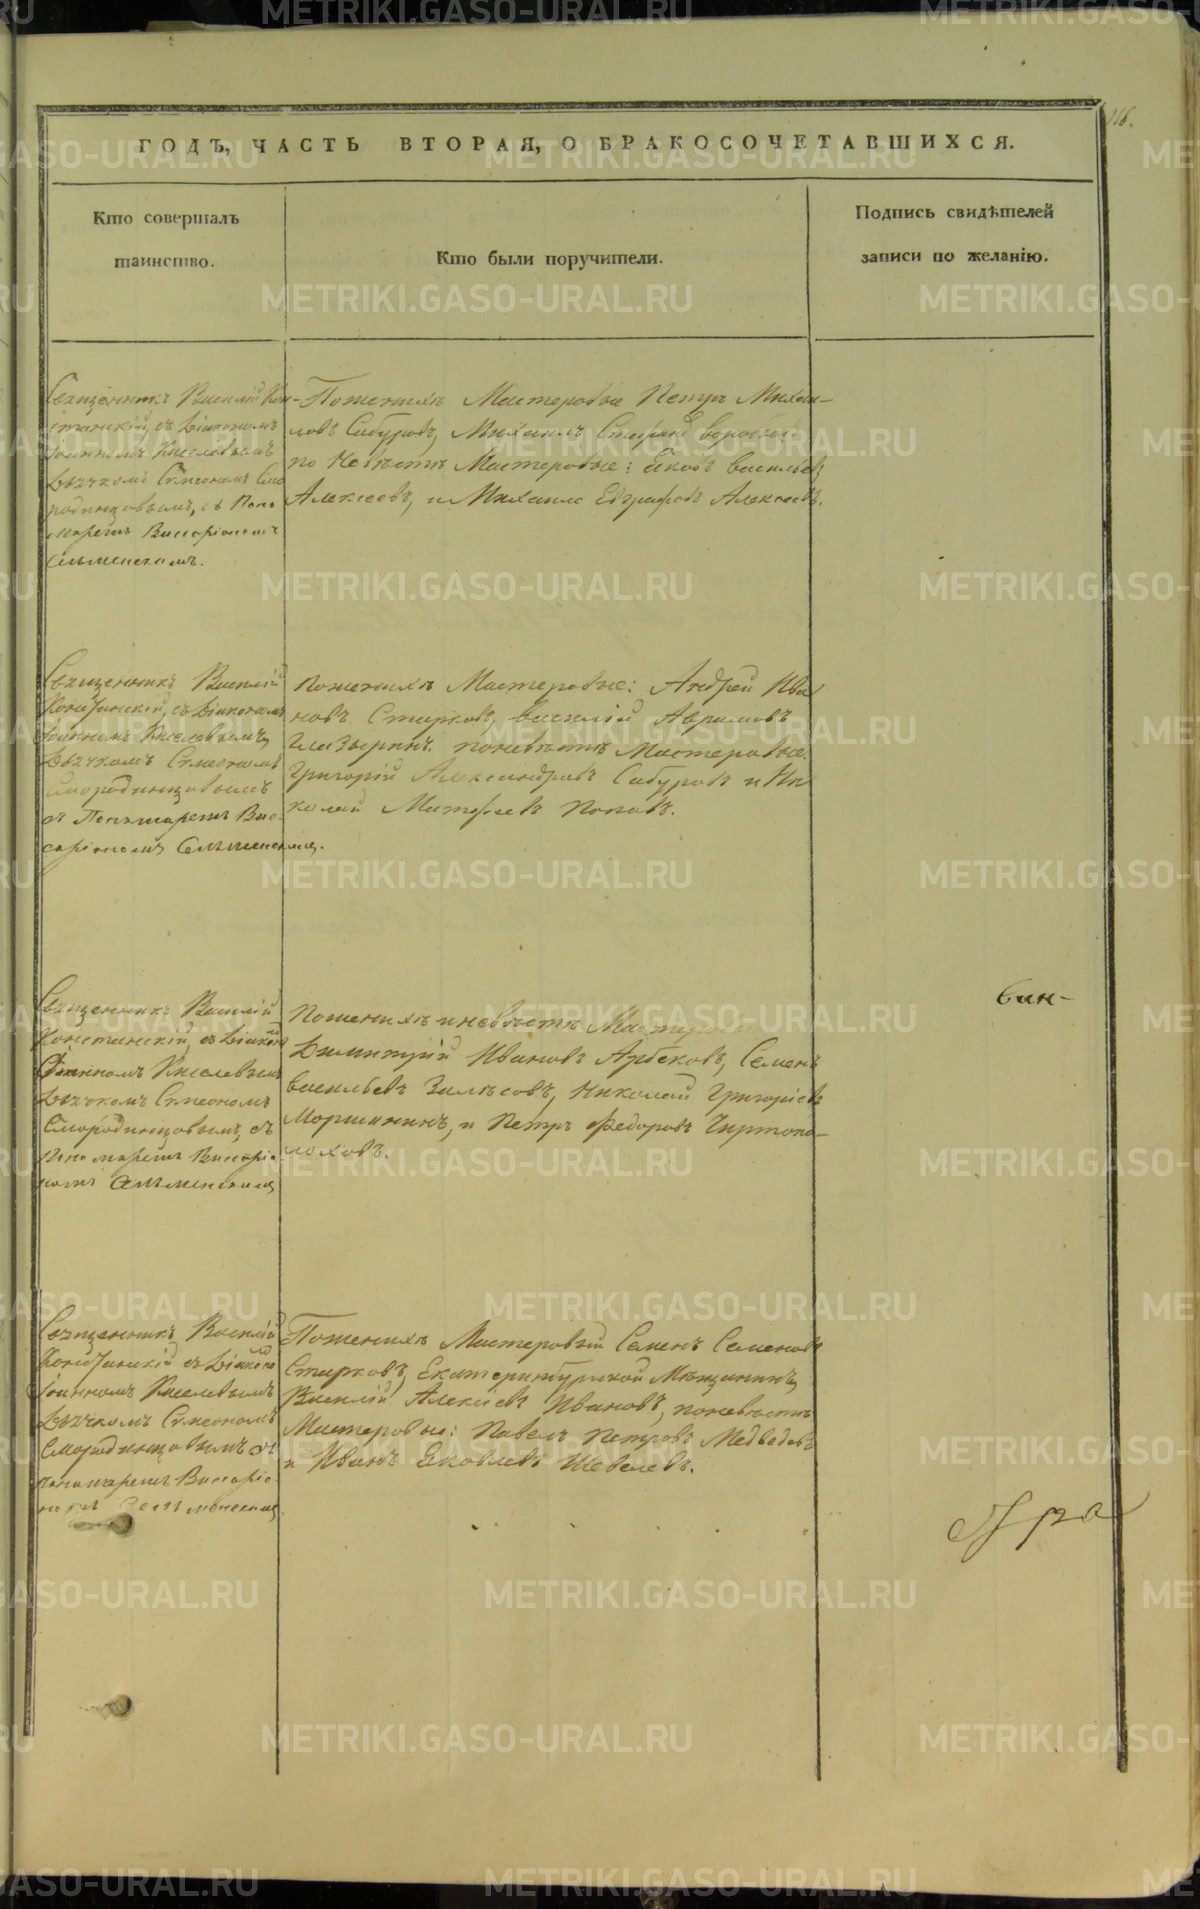 116.
ГОДЪ, ЧАСТЬ ВТОРАЯ, О БРАКОСОЧЕТАВШИХСЯ.
Кто совершалъ
таинство.
Кто были поручители.
Подпись свидѣтелей
записи по желанію.
Священникъ Василій Кон-
станскій, съ Діакономъ
Іоанномъ Киселевымъ
Дьячкомъ Симеономъ Смо
родинцовымъ, съ Поно
маремъ Висаріономъ
Сельменскимъ.
По женихѣ Мастеровые Петръ Михаи-
ловъ Сабуровъ, Михаилъ Стефановъ
по Невѣстѣ Мастеровые: Яковъ Васильевъ
Алексеевъ, и Михаилъ Евграфовъ Алексеевъ.
Священникъ Василій
Констанскій, съ Діакономъ
Іоанномъ Киселевымъ
Дьячкомъ Симеономъ
Смородинцовымъ
съ Пономаремъ Вис-
саріономъ Сельменскимъ.
По женихѣ Мастеровые: Андрей Ива
новъ Старковъ, Василій Аврамовъ
Глазыринъ. по невѣстѣ Мастеровые.
Григорій Александровъ Сабуровъ и Ни
колай Матфеевъ Поповъ.
Священникъ Василій
Констанскій, съ Діакономъ
Іоанномъ Киселевымъ
Дьячкомъ Симеономъ
Смородинцовымъ, съ
Пономаремъ Висаріо
номъ Сельменскимъ
По женихѣ и невѣстѣ Мастеровые
Димитрій Ивановъ Арбековъ, Семенъ
Васильевъ Залѣсовъ, Николай Григоріевъ
Моршининъ, и Петръ Федоровъ Чиртопо-
лоховъ.
бин-
Священникъ Василій
Констанскій съ Діаконо
Іоанномъ Киселевымъ
Дьячкомъ Симеономъ
Смородинцовымъ съ
пономаремъ Висаріо
номъ Сельменскимъ
По женихѣ Мастеровый Семенъ Семеновъ
Старковъ, Екатеринбургской Мѣщанинъ
Василій Алексіевъ Ивановъ, по невѣстѣ
Мастеровые: Павелъ Петровъ Медведевъ
и Иванъ Яковлевъ Шевелевъ.
METRIKI.GASO-URAL.RU